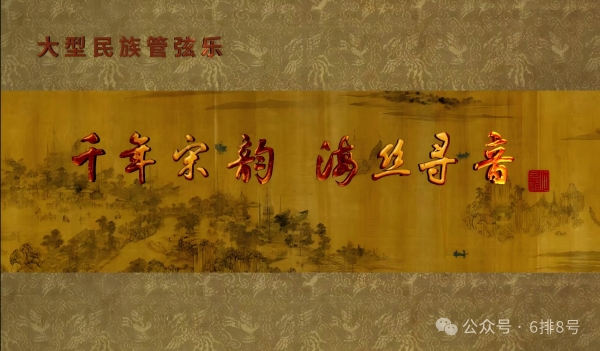 大型民族管弦乐
千年宋韵 海丝寻音
公众号·6排8号